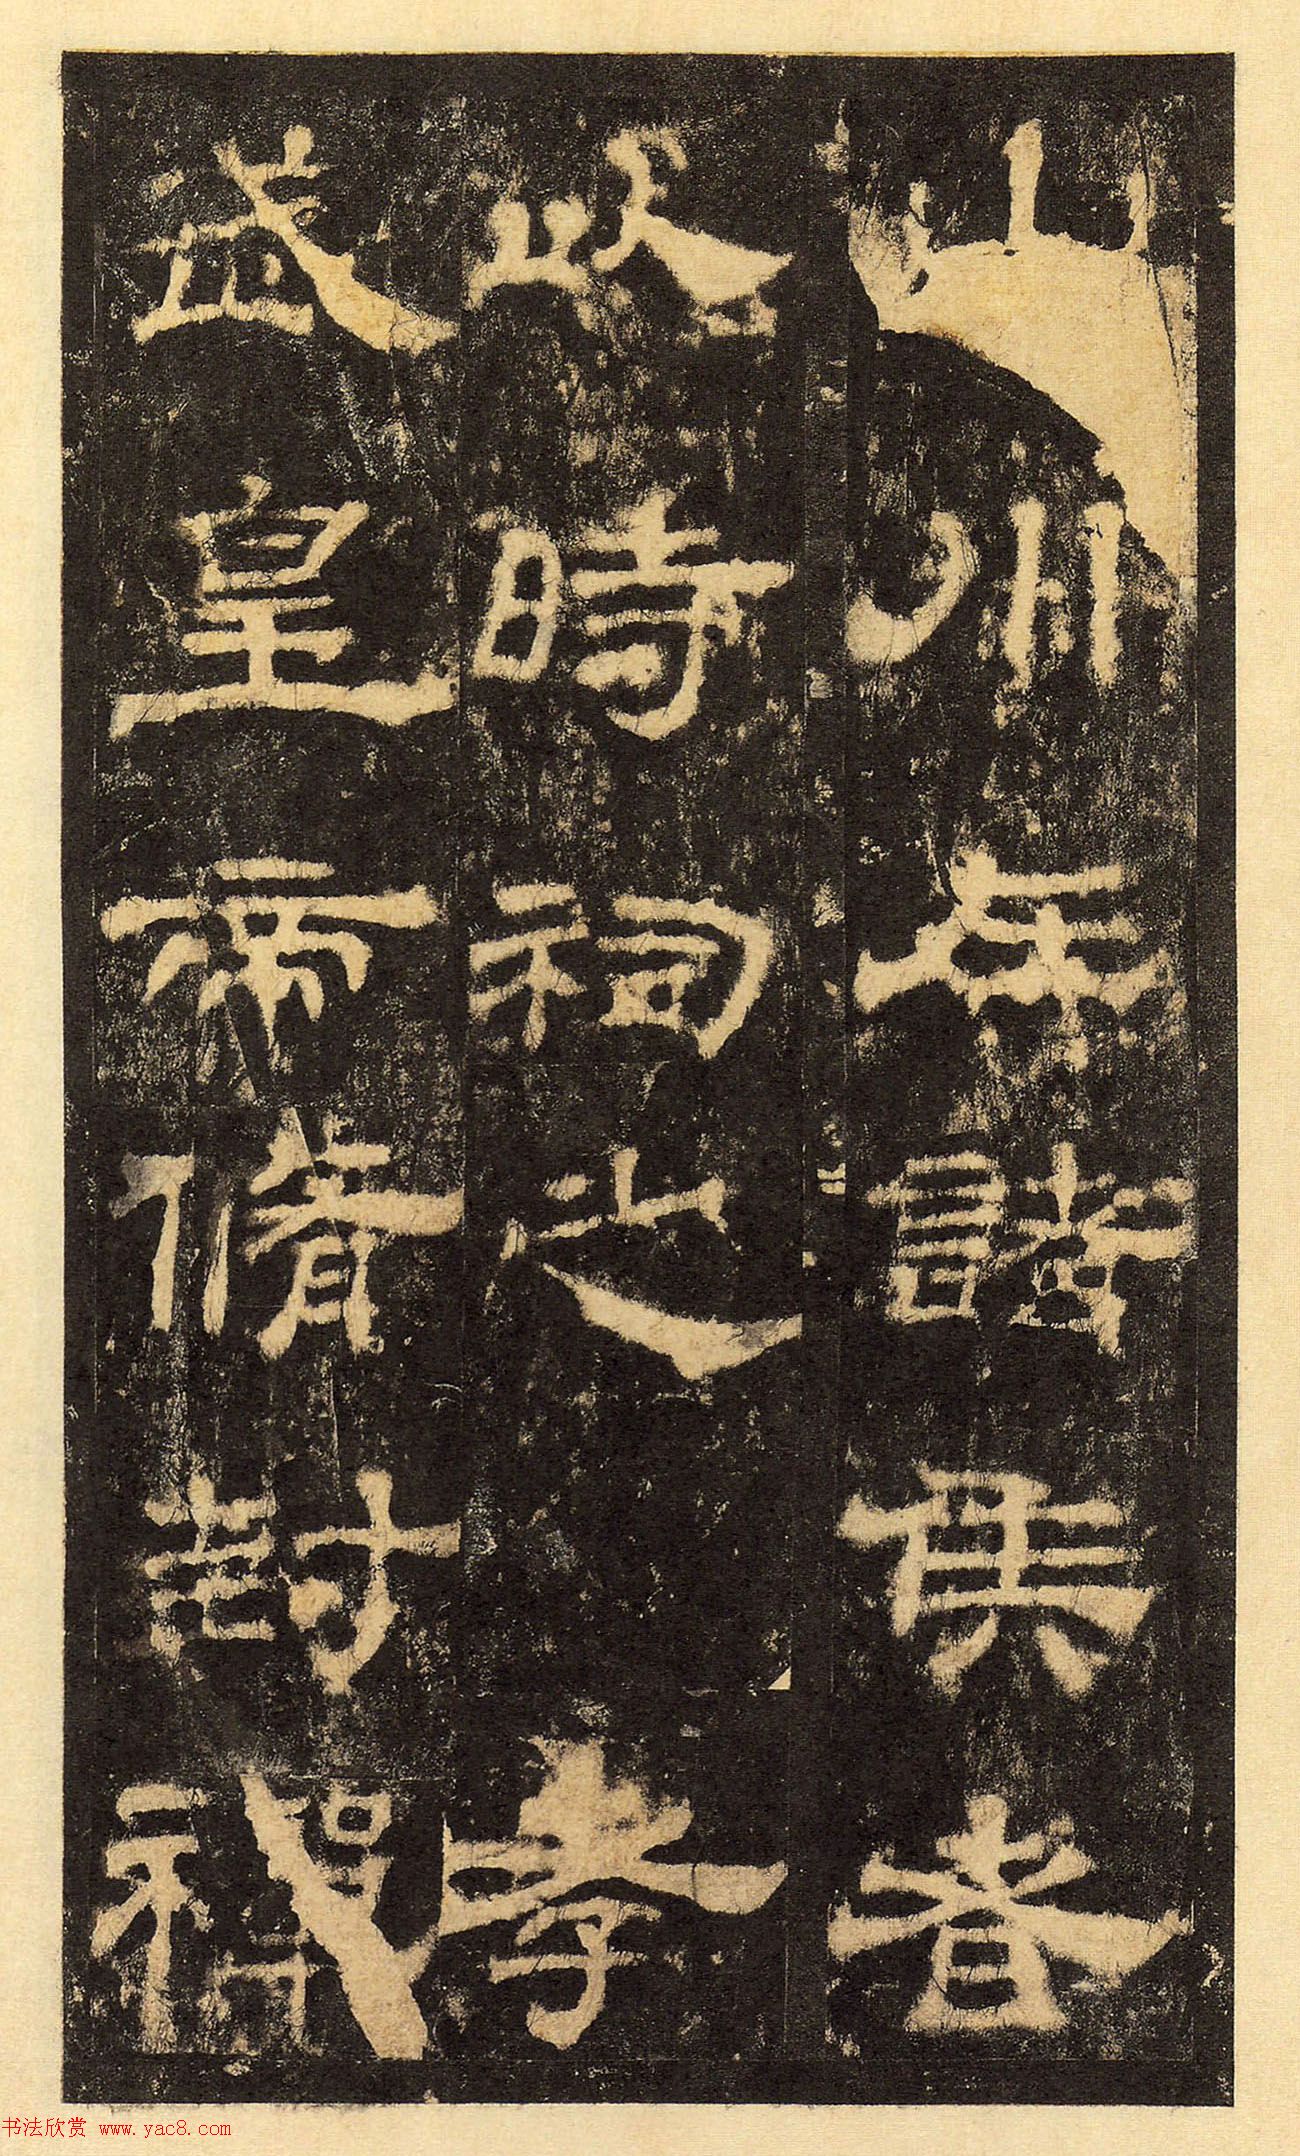 山川在諸矦者
以時祠之孝
武皇帝脩封禪
书法欣赏 www.yac8.com